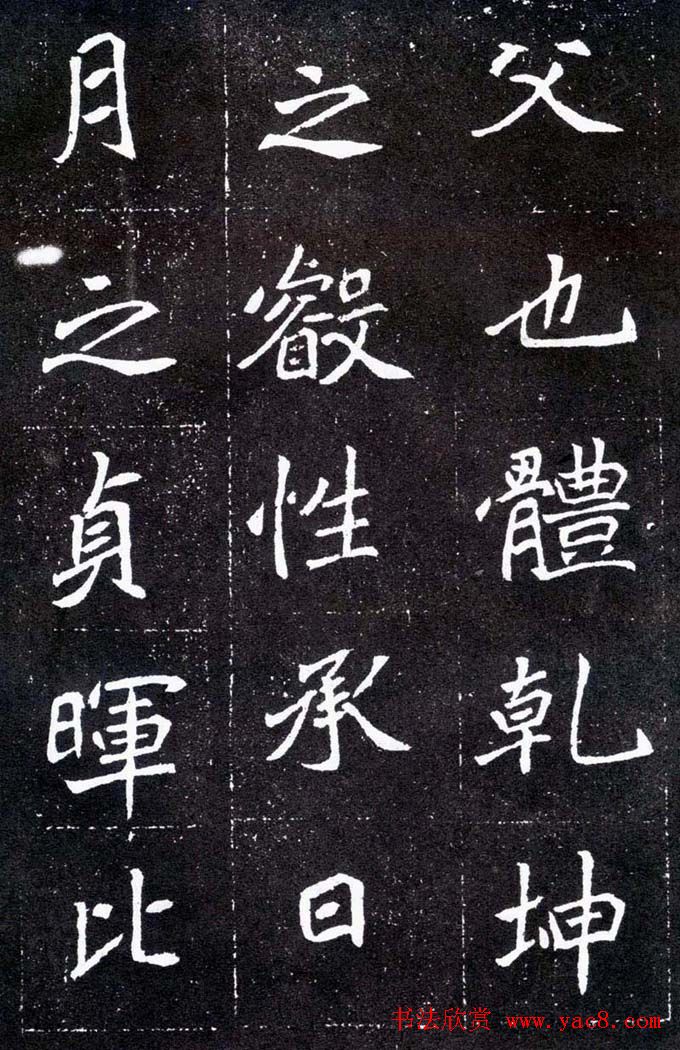 父也體乾坤
之叡性承日
月之貞暉比
书法欣赏 www.yac8.com